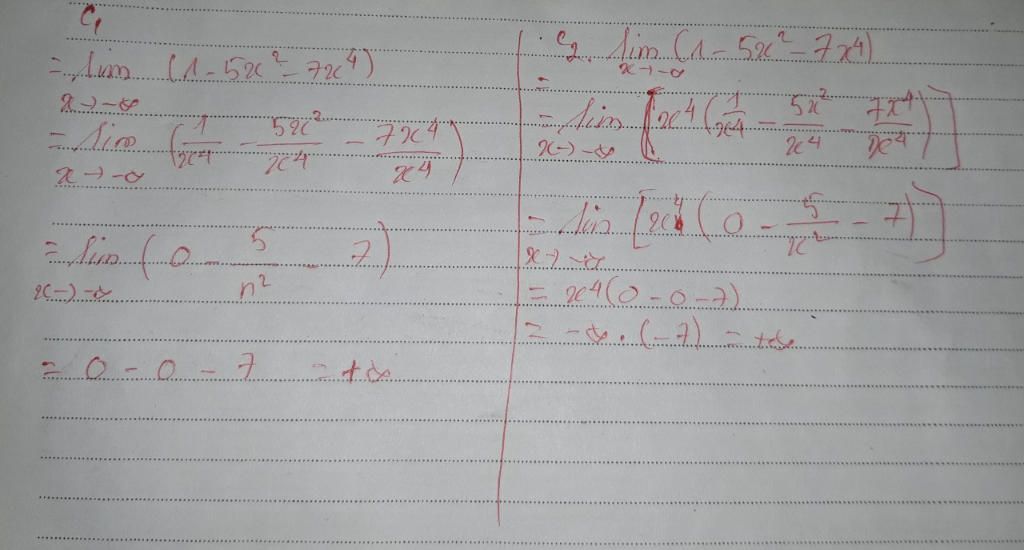 C1
= lim (1 - 5x² - 7x⁴)
x → -∞
= lim (1/x⁴ - 5x²/x⁴ - 7x⁴/x⁴)
x → -∞
= lim (0 - 5/n² - 7)
x → -∞
= 0 - 0 - 7 = +∞
C2. lim (1 - 5x² - 7x⁴)
x → -∞
=
= lim [x⁴(1/x⁴ - 5x²/x⁴ - 7x⁴/x⁴)]
x → -∞
= lim [x⁴(0 - 5/x² - 7)]
x → -∞
= x⁴(0 - 0 - 7)
= -∞ . (-7) = +∞